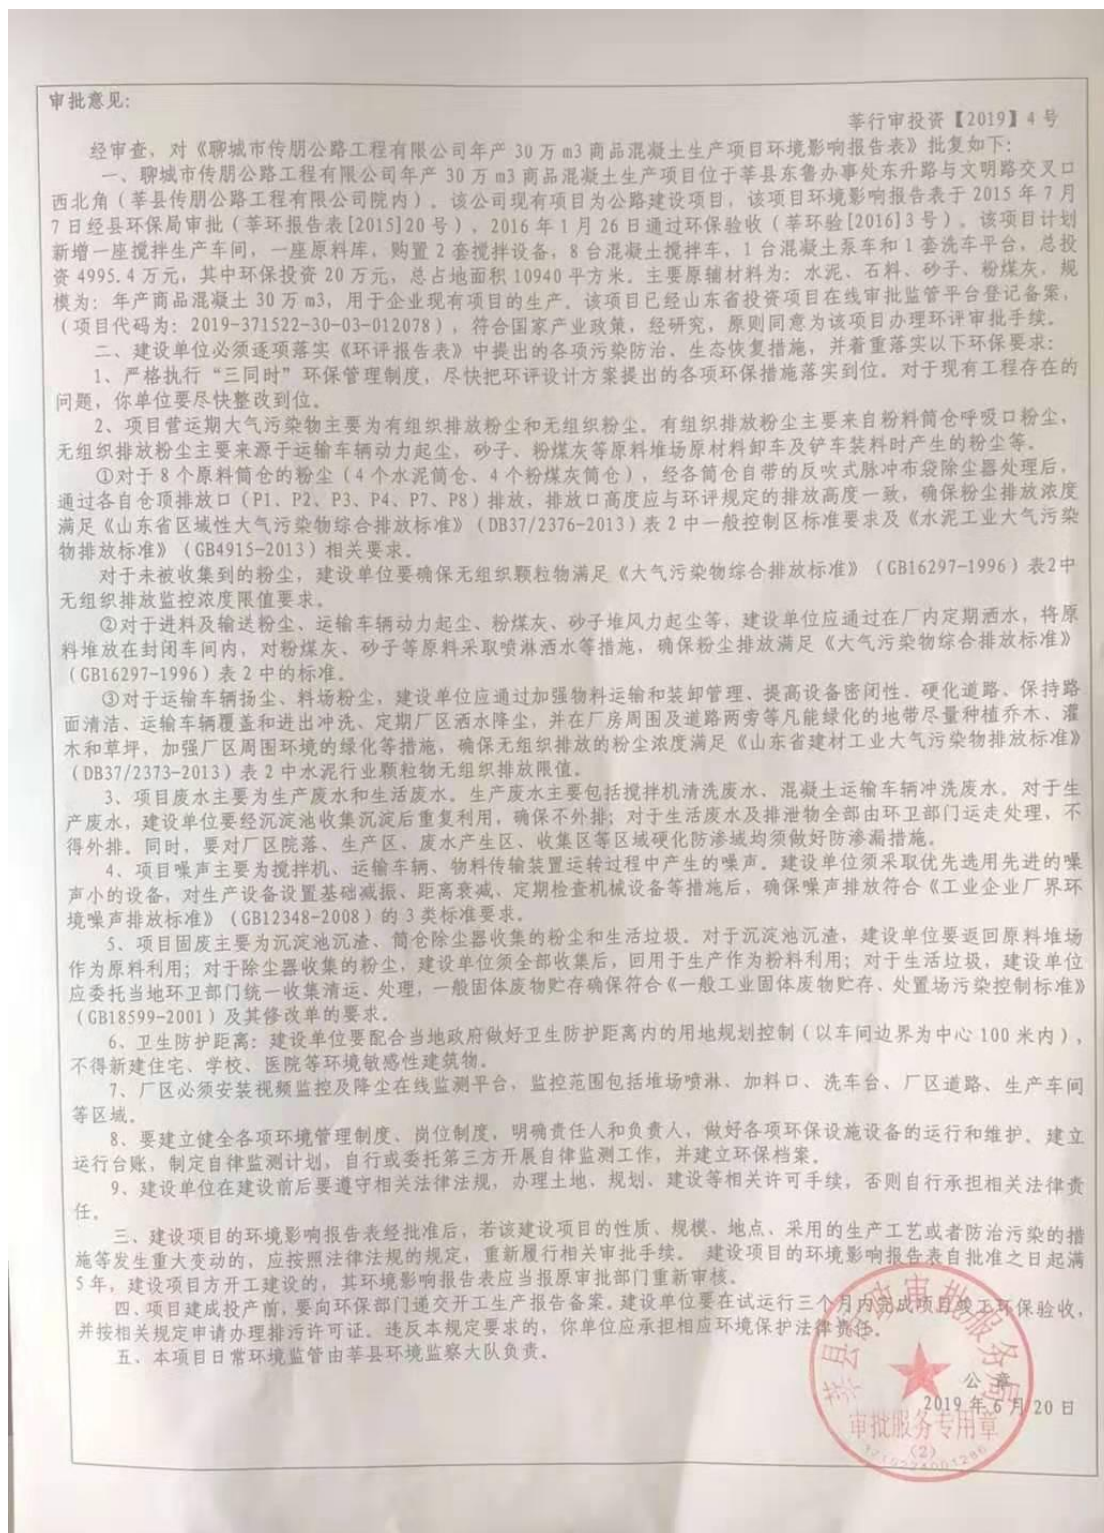 审批意见:
莘行审投资【2019】4号
经审查，对《聊城市传朋公路工程有限公司年产30万m3商品混凝土生产项目环境影响报告表》批复如下:
一、聊城市传朋公路工程有限公司年产30万m3商品混凝土生产项目位于莘县东鲁办事处东升路与文明路交叉口
西北角（莘县传朋公路工程有限公司院内）。该公司现有项目为公路建设项目，该项目环境影响报告表于2015年7月
7日经县环保局审批（莘环报告表[2015]20号），2016年1月26日通过环保验收（莘环验[2016]3号）。该项目计划
新增一座搅拌生产车间，一座原料库，购置2套搅拌设备，8台混凝土搅拌车，1台混凝土泵车和1套洗车平台，总投
资4995.4万元，其中环保投资20万元，总占地面积10940平方米。主要原辅材料为：水泥、石料、砂子、粉煤灰，规
模为：年产商品混凝土30万m3，用于企业现有项目的生产。该项目已经山东省投资项目在线审批监管平台登记备案，
（项目代码为：2019-371522-30-03-012078），符合国家产业政策，经研究，原则同意为该项目办理环评审批手续。
二、建设单位必须逐项落实《环评报告表》中提出的各项污染防治、生态恢复措施，并着重落实以下环保要求:
1、严格执行“三同时”环保管理制度，尽快把环评设计方案提出的各项环保措施落实到位。对于现有工程存在的
问题，你单位要尽快整改到位。
2、项目营运期大气污染物主要为有组织排放粉尘和无组织粉尘。有组织排放粉尘主要来自粉料筒仓呼吸口粉尘，
无组织排放粉尘主要来源于运输车辆动力起尘，砂子、粉煤灰等原料堆场原材料卸车及铲车装料时产生的粉尘等。
①对于8个原料筒仓的粉尘（4个水泥筒仓、4个粉煤灰筒仓），经各筒仓自带的反吹式脉冲布袋除尘器处理后，
通过各自仓顶排放口（P1、P2、P3、P4、P7、P8）排放，排放口高度应与环评规定的排放高度一致，确保粉尘排放浓度
满足《山东省区域性大气污染物综合排放标准》（DB37/2376-2013）表2中一般控制区标准要求及《水泥工业大气污染
物排放标准》（GB4915-2013）相关要求。
对于未被收集到的粉尘，建设单位要确保无组织颗粒物满足《大气污染物综合排放标准》（GB16297-1996）表2中
无组织排放监控浓度限值要求。
②对于进料及输送粉尘、运输车辆动力起尘、粉煤灰、砂子堆风力起尘等，建设单位应通过在厂内定期洒水，将原
料堆放在封闭车间内，对粉煤灰、砂子等原料采取喷淋洒水等措施，确保粉尘排放满足《大气污染物综合排放标准》
（GB16297-1996）表2中的标准。
③对于运输车辆扬尘、料场粉尘，建设单位应通过加强物料运输和装卸管理、提高设备密闭性、硬化道路、保持路
面清洁、运输车辆覆盖和进出冲洗、定期厂区洒水降尘，并在厂房周围及道路两旁等凡能绿化的地带尽量种植乔木、灌
木和草坪，加强厂区周围环境的绿化等措施，确保无组织排放的粉尘浓度满足《山东省建材工业大气污染物排放标准》
（DB37/2373-2013）表2中水泥行业颗粒物无组织排放限值。
3、项目废水主要为生产废水和生活废水。生产废水主要包括搅拌机清洗废水、混凝土运输车辆冲洗废水。对于生
产废水，建设单位要经沉淀池收集沉淀后重复利用，确保不外排；对于生活废水及排泄物全部由环卫部门运走处理，不
得外排。同时，要对厂区院落、生产区、废水产生区、收集区等区域硬化防渗域均须做好防渗漏措施。
4、项目噪声主要为搅拌机、运输车辆、物料传输装置运转过程中产生的噪声。建设单位须采取优先选用先进的噪
声小的设备，对生产设备设置基础减振、距离衰减、定期检查机械设备等措施后，确保噪声排放符合《工业企业厂界环
境噪声排放标准》（GB12348-2008）的3类标准要求。
5、项目固废主要为沉淀池沉渣、筒仓除尘器收集的粉尘和生活垃圾。对于沉淀池沉渣，建设单位要返回原料堆场
作为原料利用；对于除尘器收集的粉尘，建设单位须全部收集后，回用于生产作为粉料利用；对于生活垃圾，建设单位
应委托当地环卫部门统一收集清运、处理，一般固体废物贮存确保符合《一般工业固体废物贮存、处置场污染控制标准》
（GB18599-2001）及其修改单的要求。
6、卫生防护距离：建设单位要配合当地政府做好卫生防护距离内的用地规划控制（以车间边界为中心100米内），
不得新建住宅、学校、医院等环境敏感性建筑物。
7、厂区必须安装视频监控及降尘在线监测平台，监控范围包括堆场喷淋、加料口、洗车台、厂区道路、生产车间
等区域。
8、要建立健全各项环境管理制度、岗位制度，明确责任人和负责人，做好各项环保设施设备的运行和维护。建立
运行台账，制定自律监测计划，自行或委托第三方开展自律监测工作，并建立环保档案。
9、建设单位在建设前后要遵守相关法律法规，办理土地、规划、建设等相关许可手续，否则自行承担相关法律责
任。
三、建设项目的环境影响报告表经批准后，若该建设项目的性质、规模、地点、采用的生产工艺或者防治污染的措
施等发生重大变动的，应按照法律法规的规定，重新履行相关审批手续。 建设项目的环境影响报告表自批准之日起满
5年，建设项目方开工建设的，其环境影响报告表应当报原审批部门重新审核。
四、项目建成投产前，要向环保部门递交开工生产报告备案。建设单位要在试运行三个月内完成项目竣工环保验收，
并按相关规定申请办理排污许可证。违反本规定要求的，你单位应承担相应环境保护法律责任。
五、本项目日常环境监管由莘县环境监察大队负责。
莘县行政审批服务局
公 章
2019年6月20日
审批服务专用章
（2）